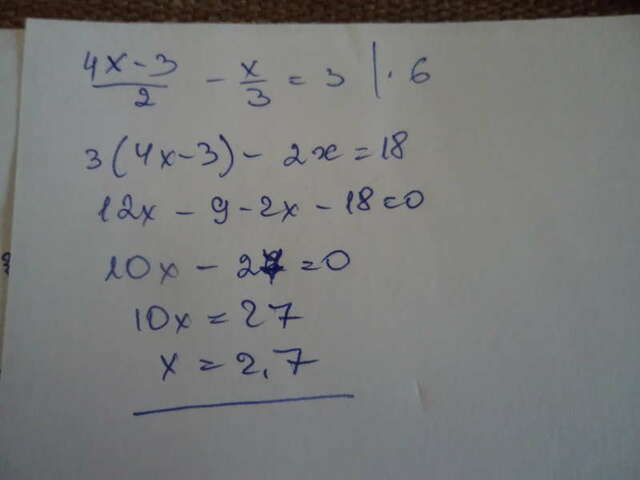 4x-3/2 - x/3 = 3 | · 6
3(4x-3) - 2x = 18
12x - 9 - 2x - 18 = 0
10x - 27 = 0
10x = 27
x = 2,7